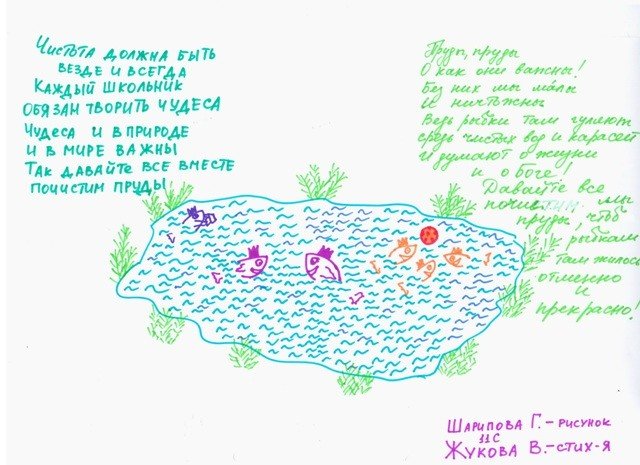 Чистота должна быть
везде и всегда
Каждый школьник
обязан творить чудеса
Чудеса и в природе
и в мире важны
Так давайте все вместе
почистим пруды
Пруды, пруды
О как они важны!
Без них мы малы
и ничтожны
Ведь рыбки там гуляют
средь чистых вод и карасей
И думают о жизни
и о боге!
Давайте все
почистим мы
пруды, чтоб
рыбкам
там жилось
отменно
и
прекрасно!
Шарипова Г. – рисунок
11С
Жукова В. – стих-я